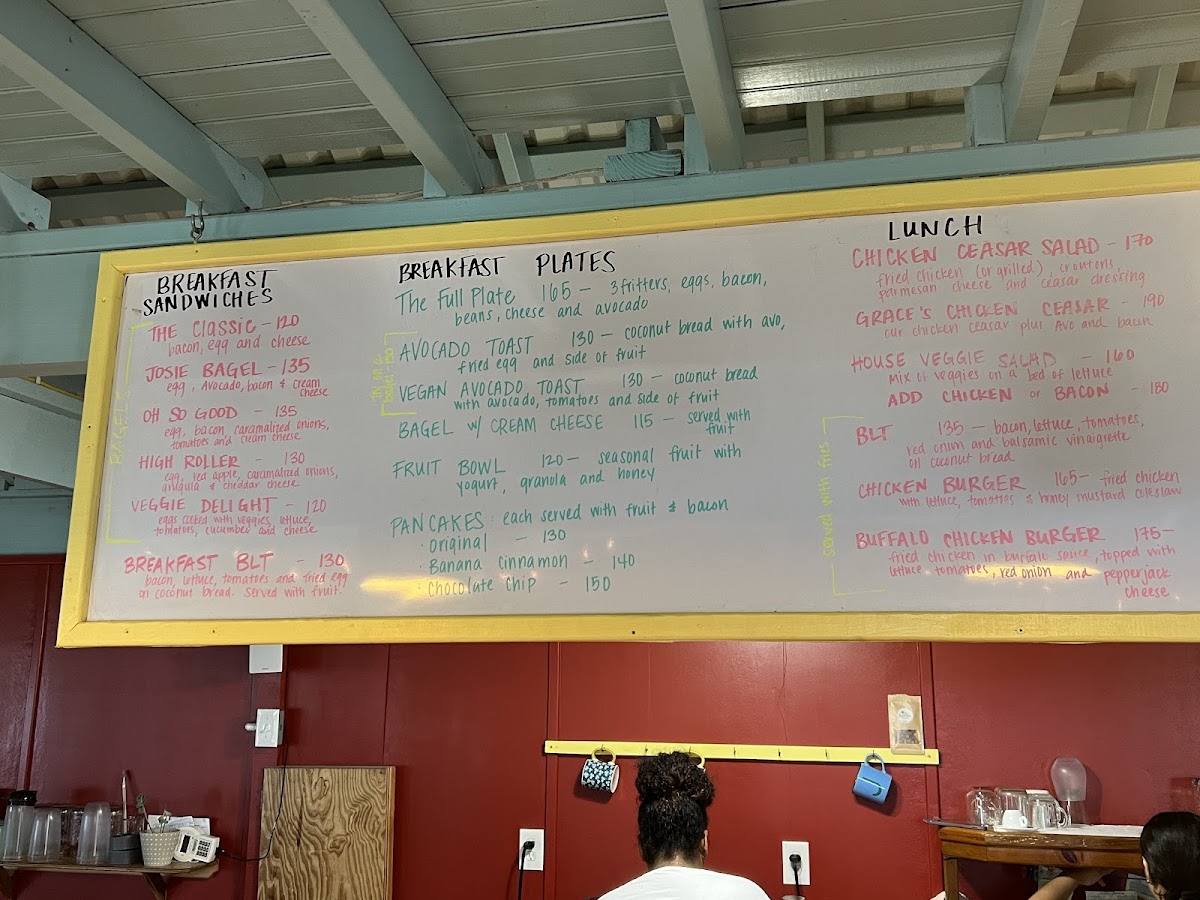 BREAKFAST
SANDWICHES
BAGELS
THE Classic - 120
bacon, egg and cheese
JOSIE BAGEL - 135
egg, Avocado, bacon & cream
cheese
OH SO GOOD - 135
egg, bacon, caramalized onions,
tomatoes and cream cheese
HIGH ROLLER - 130
egg, red apple, caramalized onions,
arugula & cheddar cheese
VEGGIE DELIGHT - 120
eggs cooked with veggies, lettuce,
tomatoes, cucumber and cheese
BREAKFAST BLT - 130
bacon, lettuce, tomatoes and fried egg
on coconut bread. Served with fruit.
BREAKFAST PLATES
The Full Plate 165 - 3 fritters, eggs, bacon,
beans, cheese and avocado
AVOCADO TOAST 130 - coconut bread with avo,
fried egg and side of fruit
VEGAN AVOCADO TOAST 130 - coconut bread
with avocado, tomatoes and side of fruit
BAGEL W/ CREAM CHEESE 115 - served with
fruit
FRUIT BOWL 120 - seasonal fruit with
yogurt, granola and honey
PANCAKES: each served with fruit & bacon
· original - 130
· Banana cinnamon - 140
· chocolate chip - 150
LUNCH
CHICKEN CEASAR SALAD - 170
fried chicken (or grilled), croutons,
parmesan cheese and ceasar dressing
GRACE'S CHICKEN CEASAR - 190
our chicken ceasar plus Avo and bacon
HOUSE VEGGIE SALAD - 160
Mix of veggies on a bed of lettuce
ADD CHICKEN or BACON - 180
served with fries
BLT 135 - bacon, lettuce, tomatoes,
red onion and balsamic vinaigrette
on coconut bread
CHICKEN BURGER 165 - fried chicken
with lettuce, tomatoes & honey mustard coleslaw
BUFFALO CHICKEN BURGER 175 -
fried chicken in buffalo sauce, topped with
lettuce, tomatoes, red onion and pepperjack
cheese